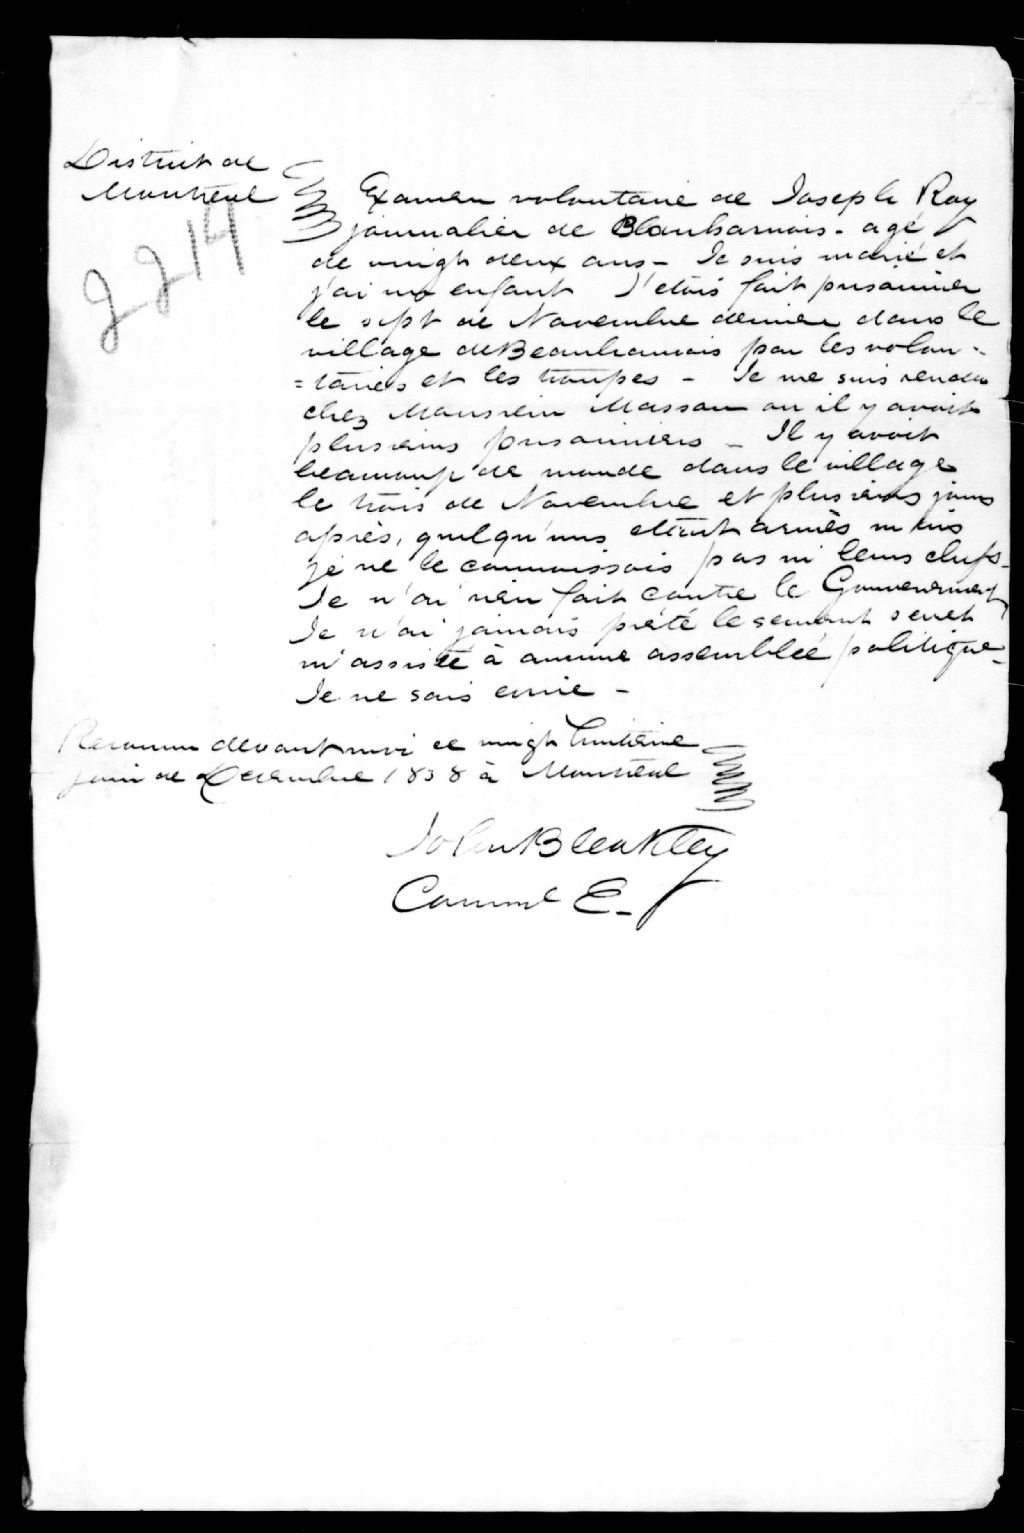 District de
Montreal
2214
Examen volontaire de Joseph Roy
journalier de Beauharnois - agé
de vingt deux ans - Je suis marié et
j'ai un enfant J'etois fait prisonnier
le sept de Novembre dernier dans le
village de Beauharnois par les volon-
=taires et les troupes - Je me suis rendu
chez Monsieur Masson ou il y avoit
plusieurs prisonniers - Il y avoit
beaucoup de monde dans le village
le trois de Novembre et plusieurs jours
après, quelqu'uns etoient armés mais
je ne le connoissois pas ni leurs chefs -
Je n'ai rien fait contre le Gouvernement
Je n'ai jamais prété le serment secret
ni assisté à aucune assemblée politique -
Je ne sais ecrire -
Reconnu devant moi ce vingt huitieme
jour de Decembre 1838 à Montreal
John Bleakley
Comm E -